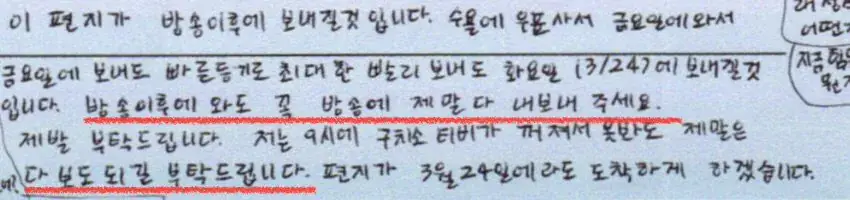 이 편지가 방송이후에 보내질것 입니다. 수욜에 우표사서 금요일에와서
금요일에 보내도 빠른등기로 최대한 빨리 보내도 화요일 (3/24)에 보내질것
입니다. 방송이후에 와도 꼭 방송에 제말다 내보내 주세요.
제발 부탁드립니다. 저는 9시에 구치소 티비가 꺼져서 못반도 제말은
다 보도 되길 부탁드립니다. 편지가 3월 24일에라도 도착하게 하겠습니다.